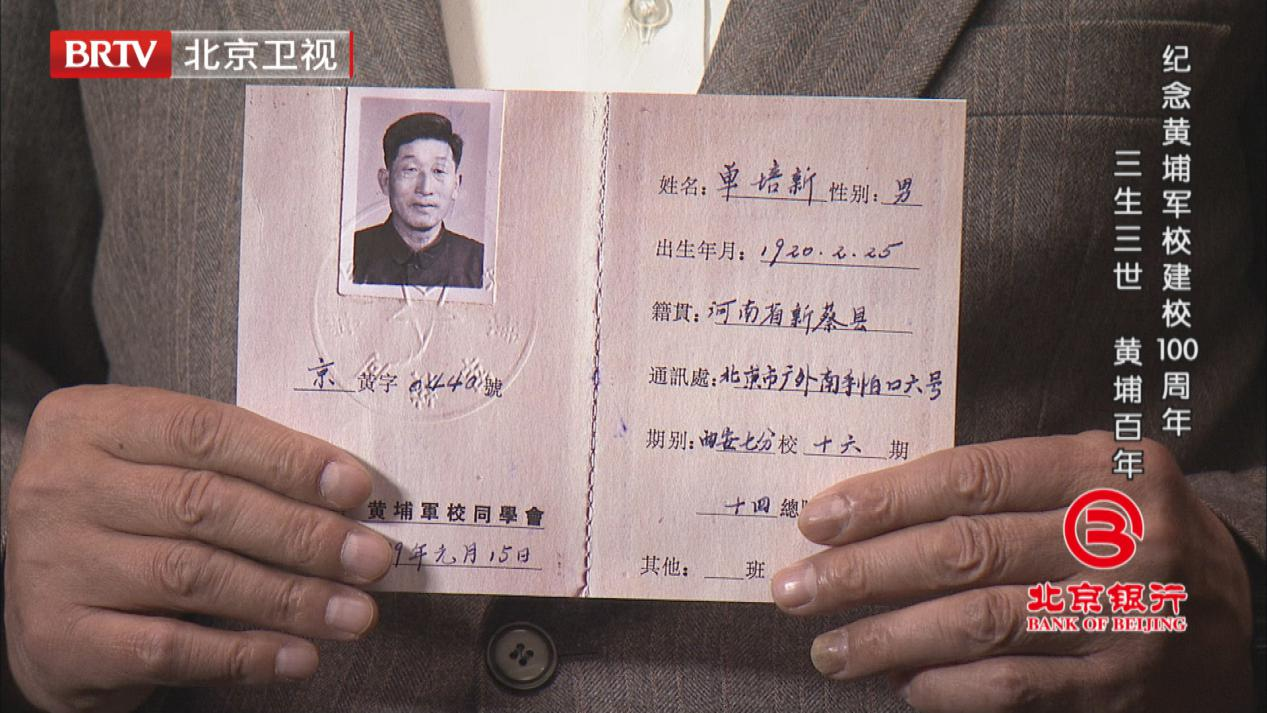 BRTV 北京卫视
纪念黄埔军校建校100周年
三生三世 黄埔百年
京 黄字 0440號
黄埔軍校同學會
9年元月15日
姓名：单培新 性别：男
出生年月：1920.2.25
籍貫：河南省新蔡县
通訊處：北京市广外南李怕口六号
期别：西安七分校 十六 期
十四 總
其他： 班
北京银行
BANK OF BEIJING